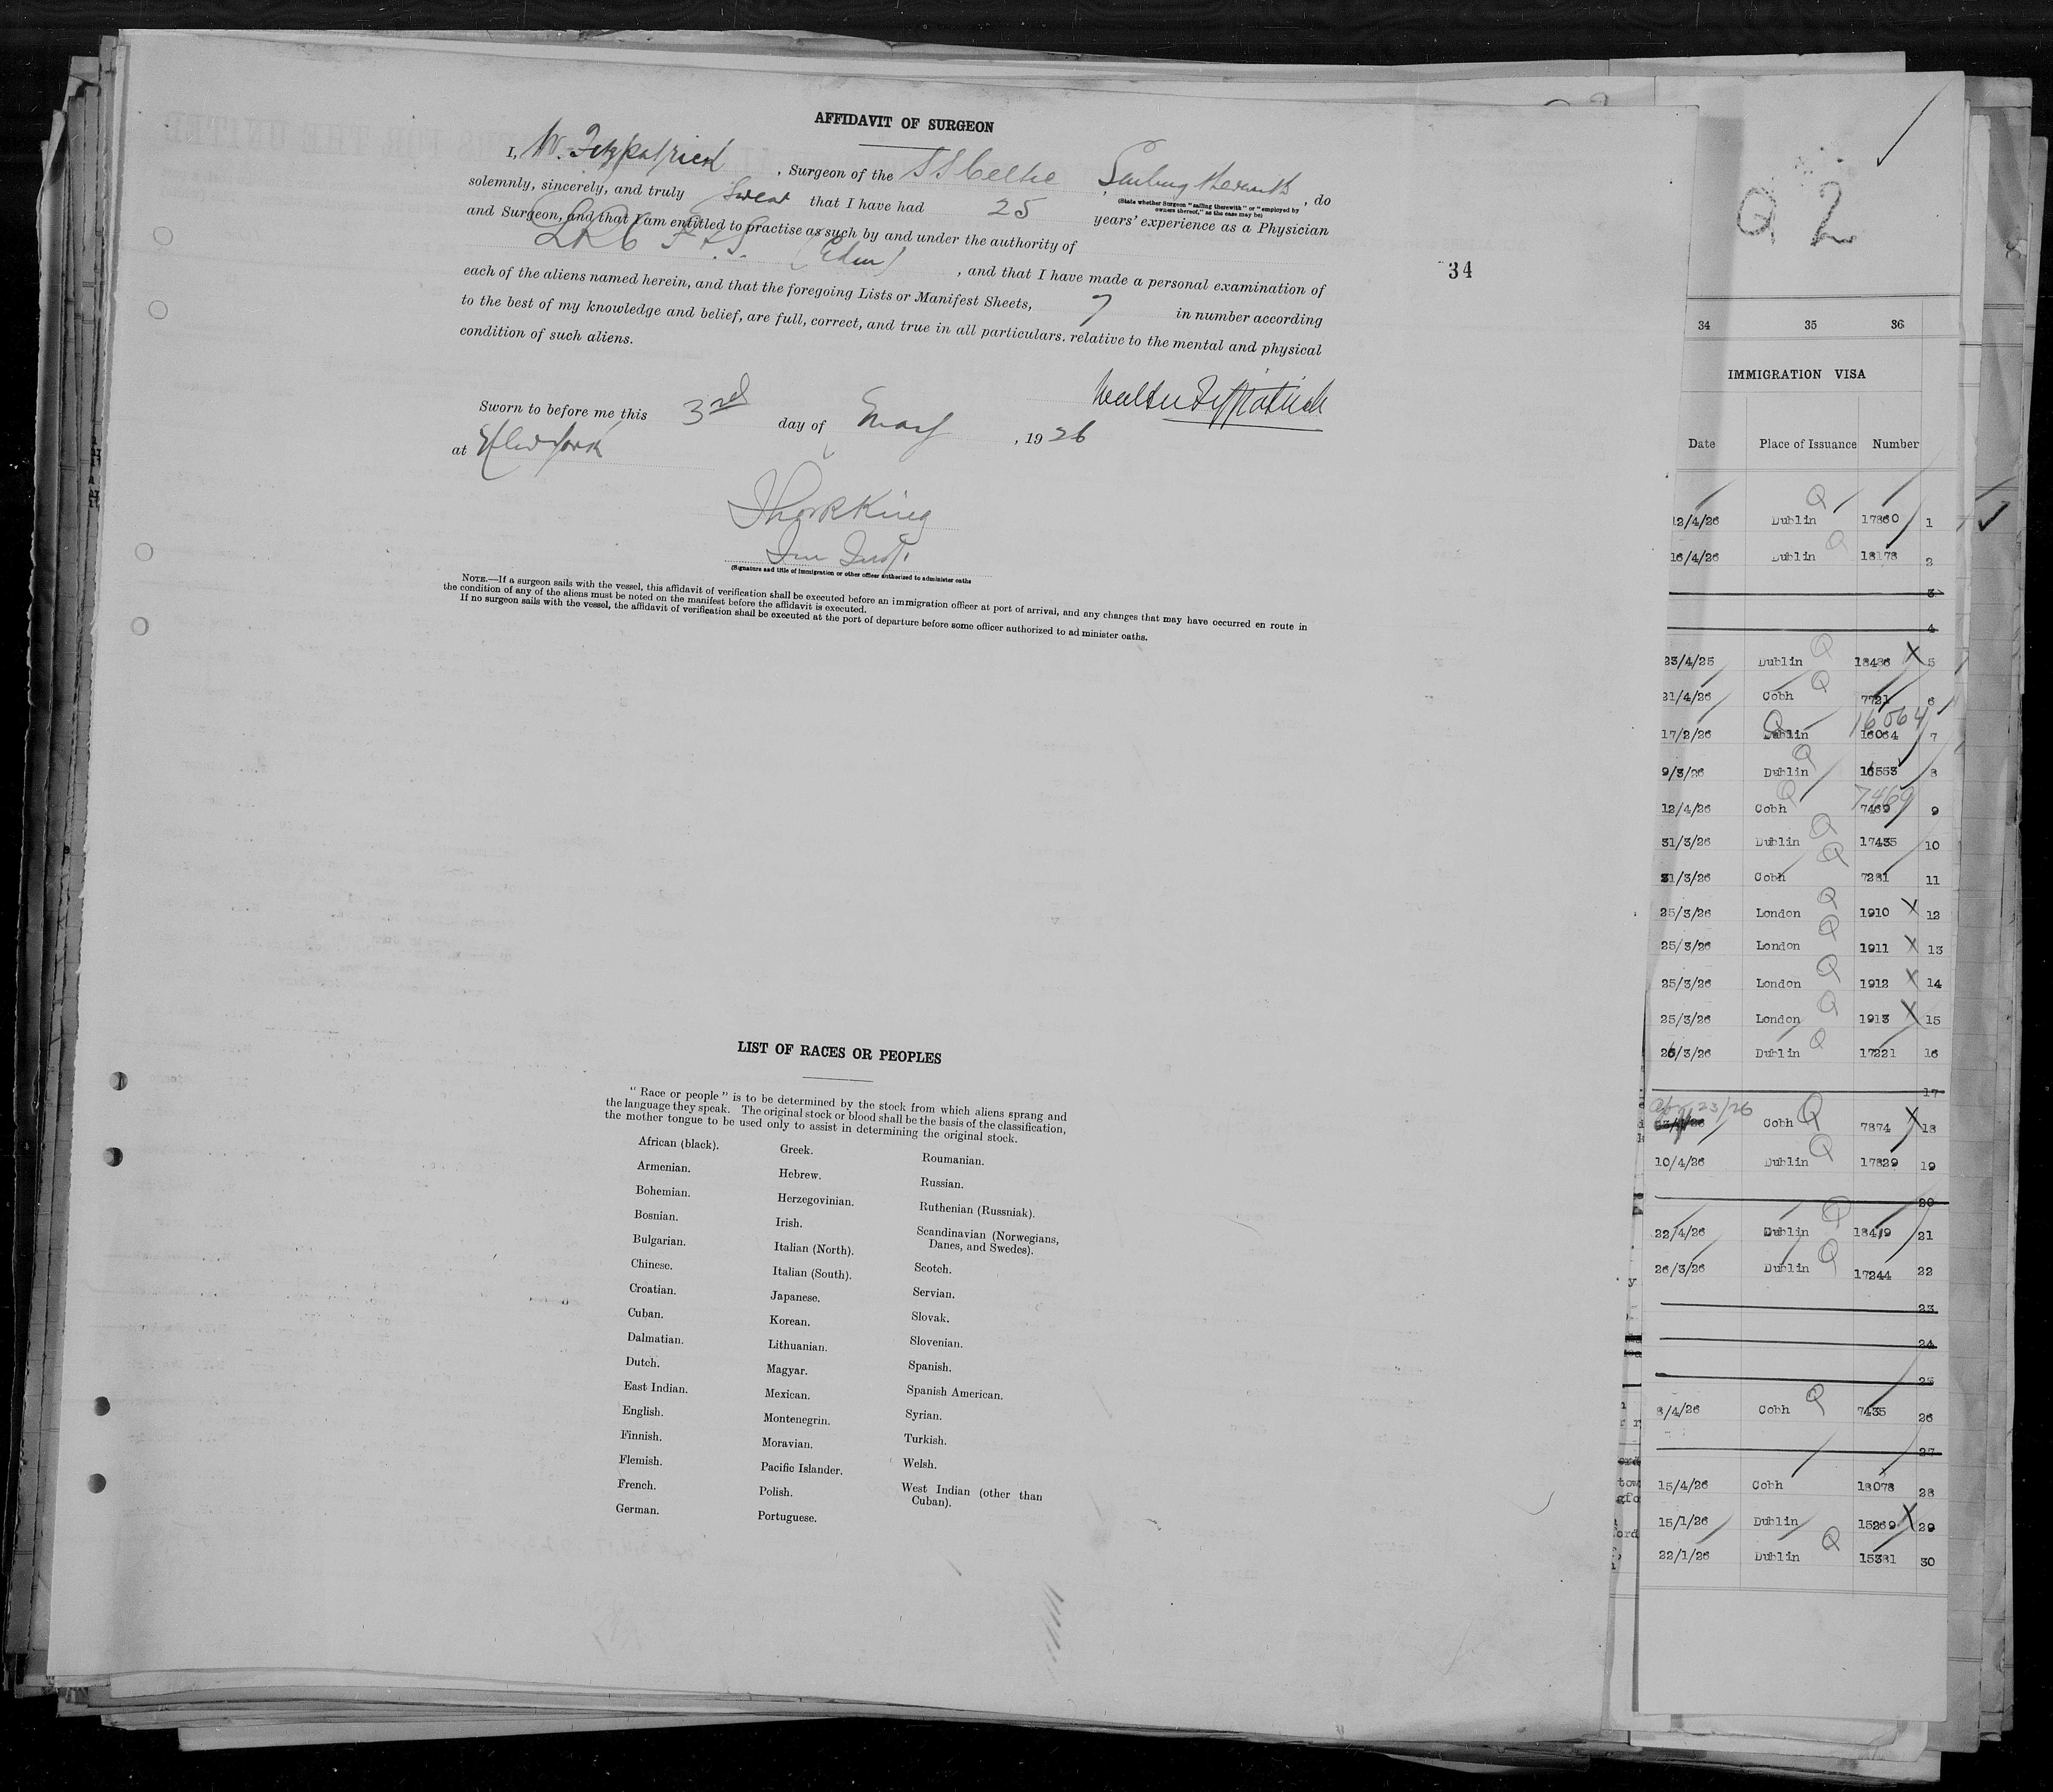 AFFIDAVIT OF SURGEON
I, W. Fitzpatrick, Surgeon of the SS Celtic Sailing therewith, do
(State whether Surgeon "sailing therewith" or "employed by
owners thereof," as the case may be)
solemnly, sincerely, and truly swear that I have had 25 years' experience as a Physician
and Surgeon, and that I am entitled to practise as such by and under the authority of
(Edin)
, and that I have made a personal examination of
each of the aliens named herein, and that the foregoing Lists or Manifest Sheets, 7 in number according
to the best of my knowledge and belief, are full, correct, and true in all particulars, relative to the mental and physical
condition of such aliens.
Walter Fitzpatrick
Sworn to before me this 3rd day of May, 1926
at New York
King
Imm Inspt.
(Signature and title of immigration or other officer authorized to administer oaths
NOTE.—If a surgeon sails with the vessel, this affidavit of verification shall be executed before an immigration officer at port of arrival, and any changes that may have occurred en route in
the condition of any of the aliens must be noted on the manifest before the affidavit is executed.
If no surgeon sails with the vessel, the affidavit of verification shall be executed at the port of departure before some officer authorized to ad minister oaths.
34
LIST OF RACES OR PEOPLES
"Race or people" is to be determined by the stock from which aliens sprang and
the language they speak. The original stock or blood shall be the basis of the classification,
the mother tongue to be used only to assist in determining the original stock.
African (black).
Armenian.
Bohemian.
Bosnian.
Bulgarian.
Chinese.
Croatian.
Cuban.
Dalmatian.
Dutch.
East Indian.
English.
Finnish.
Flemish.
French.
German.
Greek.
Hebrew.
Herzegovinian.
Irish.
Italian (North).
Italian (South).
Japanese.
Korean.
Lithuanian.
Magyar.
Mexican.
Montenegrin.
Moravian.
Pacific Islander.
Polish.
Portuguese.
Roumanian.
Russian.
Ruthenian (Russniak).
Scandinavian (Norwegians,
Danes, and Swedes).
Scotch.
Servian.
Slovak.
Slovenian.
Spanish.
Spanish American.
Syrian.
Turkish.
Welsh.
West Indian (other than
Cuban).
Q 2
34 35 36
IMMIGRATION VISA
Date Place of Issuance Number
12/4/26 Dublin Q 17860 1
16/4/26 Dublin Q 18178 2
3
4
23/4/25 Dublin Q 18486 X 5
21/4/26 Cobh Q 7721 6
16064
17/2/26 Dublin Q 16064 7
9/3/26 Dublin Q 16553 8
7469
12/4/26 Cobh Q 7469 9
31/3/26 Dublin Q 17435 10
31/3/26 Cobh Q 7281 11
25/3/26 London Q 1910 X 12
25/3/26 London Q 1911 X 13
25/3/26 London Q 1912 X 14
25/3/26 London Q 1913 X 15
26/3/26 Dublin Q 17221 16
17
Apr 23/26
Cobh Q 7874 X 18
10/4/26 Dublin Q 17829 19
20
22/4/26 Dublin Q 18419 21
26/3/26 Dublin Q 17244 22
23
24
25
8/4/26 Cobh Q 7435 26
27
15/4/26 Cobh 18078 28
15/1/26 Dublin 15269 X 29
22/1/26 Dublin Q 15381 30